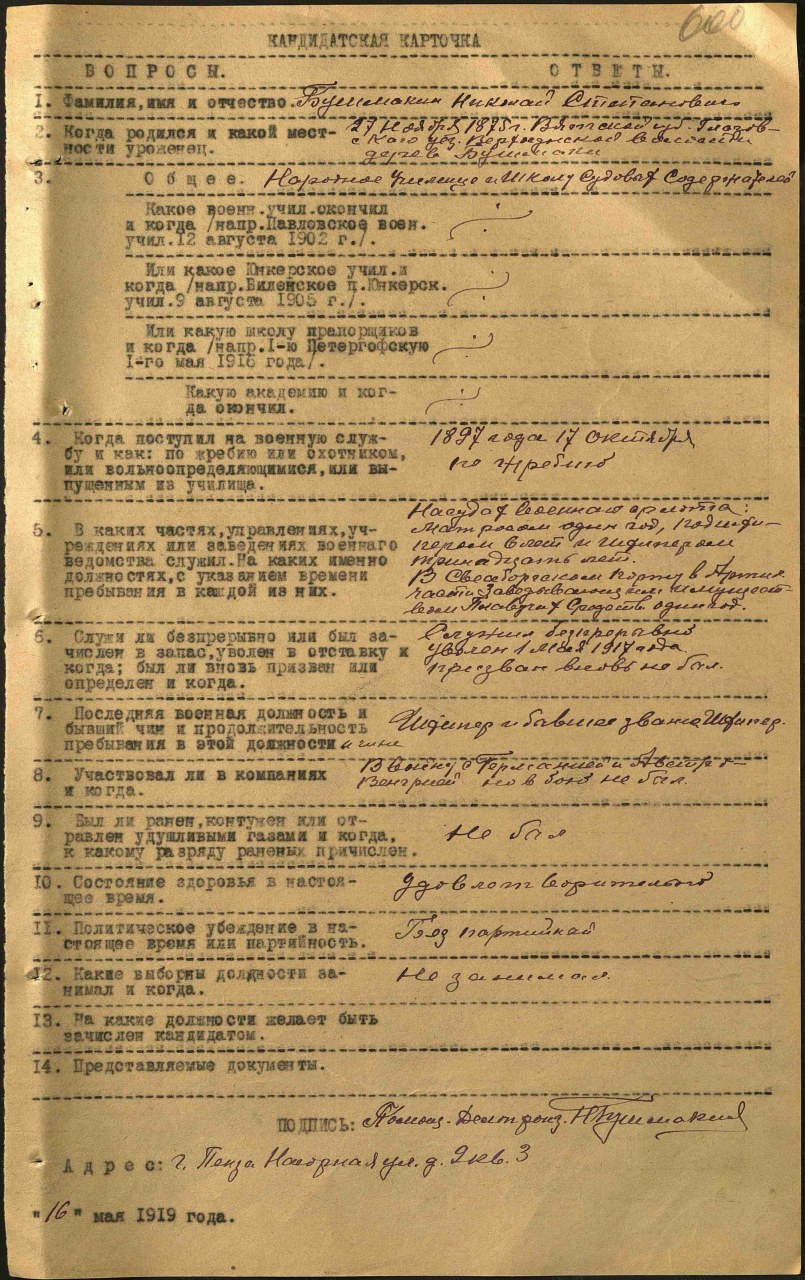 600
КАНДИДАТСКАЯ КАРТОЧКА
ВОПРОСЫ. ОТВЕТЫ.
1. Фамилия, имя и отчество. Бушмакин Николай Степанович
2. Когда родился и какой мест- 27 Ноября 1875 г. Вятской губ. Глазов-
ности уроженец. ского уез. волости
дерев Бушмаки
3. Общее. Народное училище и Школу Судовых Содержателей
Какое военн.учил.окончил
и когда /напр.Павловское воен.
учил.12 августа 1902 г./.
Или какое Юнкерское учил.и
когда /напр.Виленское п.Юнкерск.
учил.9 августа 1905 г./.
Или какую школу прапорщиков
и когда /напр.I-ю Петергофскую
I-го мая 1916 года/.
Какую академию и ког-
да окончил.
4. Когда поступил на военную служ- 1897 года 17 Октября
бу и как: по жребию или охотником, по жребию
или вольноопределяющимися,или вы-
пущенным из училища.
На судах военного флота:
5. В каких частях,управлениях,уч- матросом один год, подшки-
реждениях или заведениях военнаго пером 6 лет и Шкипером
ведомства служил.На каких именно тринадцать лет.
должностях,с указанием времени В Свеаборгском порту в Артил.
пребывания в каждой из них. части Заведывающим имущест-
вом Плавучих Средств один год.
6. Служи ли безпрерывно или был за- Служил безпрерывно
числен в запас,уволен в отставку и уволен 1 Мая 1917 года
когда; был ли вновь призван или призван вновь не был.
определен и когда.
7. Последняя военная должность и
бывший чин и продолжительность Шкипер и бывшее звание Шкипер.
пребывания в этой должности и чине
8. Участвовал ли в компаниях В войну с Германией и Австро-
и когда. Венгрией но в бою не был.
9. Был ли ранен,контужен или от-
равлен удушливыми газами и когда, Не был
к какому разряду раненых причислен.
10. Состояние здоровья в настоя- Удовлетворительно
щее время.
11. Политическое убеждение в на- Без партийный
стоящее время или партийность.
12. Какие выборны должности за- Не занимал.
нимал и когда.
13. На какие должности желает быть
зачислен кандидатом.
14. Представляемые документы.
ПОДПИСЬ: Н Бушмакин
Адрес: г. Пенза Нагорная ул. д. 9 кв. 3
"16" мая 1919 года.